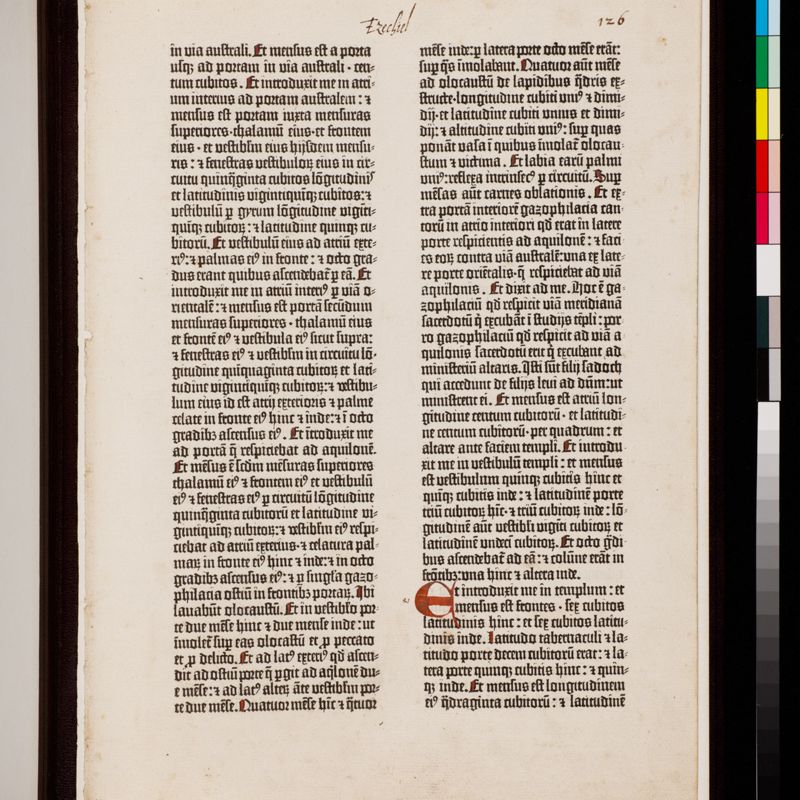 Ezechiel
126
in via australi. Et mensus est a porta
usqꝫ ad portam in via australi · cen-
tum cubitos. Et introduxit me in atri-
um interius ad portam australem: ⁊
mensus est portam iuxta mensuras
superiores·thalamū eius·et frontem
eius·et vestiblm̄ eius hijsdem mensu-
ris: ⁊ fenestras vestibuloꝝ eius in cir-
cuitu quinq̄ginta cubitos lōgitudinis
et latitudinis vigintiquīqꝫ cubitos: ⁊
vestibulū ꝑ gyrum lōgitudine vigīti-
quīqꝫ cubitoꝝ: ⁊ latitudine quinqꝫ cu-
bitorū. Et vestibulū eius ad atriū exte-
riꝰ: ⁊ palmas eiꝰ in fronte: ⁊ octo gra-
dus erant quibus ascendebat̄ ꝑ eā. Et
introduxit me in atriū interiꝰ ꝑ viā o-
rientalē: ⁊ mensus est portā secūdum
mensuras superiores·thalamū eius
et frontē eiꝰ ⁊ vestibula eiꝰ sicut supra:
⁊ fenestras eiꝰ ⁊ vestiblm̄ in circuitu lō-
gitudine quīquaginta cubitoꝝ et lati-
tudine vigintiquīqꝫ cubitoꝝ: ⁊ vestibu-
lum eius id est atrij exterioris ⁊ palme
celate in fronte eiꝰ hinc ⁊ inde: ⁊ ī octo
gradibꝫ ascensus eiꝰ. Et ītroduxit me
ad portā q̄ respiciebat ad aquilonē.
Et mēsus ē scdm̄ mēsuras superiores
thalamū eiꝰ ⁊ frontem eiꝰ et vestibulū
eiꝰ ⁊ fenestras eiꝰ ꝑ circuitū lōgitudine
quinq̄ginta cubitorū et latitudine vi-
gintiquīqꝫ cubitoꝝ: ⁊ vestiblm̄ eiꝰ respi-
ciebat ad atriū exterius·⁊ celatura pal-
maꝝ in fronte eiꝰ hinc ⁊ inde: ⁊ in octo
gradibꝫ ascensus eiꝰ: ⁊ ꝑ singl̄a gazo-
philacia ostiū in frontibꝫ portaꝝ. Ibi
lauabūt olocaustū. Et in vestibl̄o por-
te due mēse hinc ⁊ due mense inde: ut
īmolet̄ suꝑ eas olocastū et ꝓ peccato
et ꝓ delicto. Et ad latꝰ exteriꝰ qd̄ ascen-
dit ad ostiū porte q̄ ꝑgit ad aq̄lonē du-
e mēse: ⁊ ad latꝰ alteꝝ āte vestiblm̄ por-
te due mēse. Quatuor mēse hīc ⁊ q̄tuor
mēse inde: ꝑ latera porte octo mēse erāt:
suꝑ q̄s īmolabant. Quatuor aūt mēse
ad olocaustū de lapidibus q̄dris ex-
structe·longitudine cubiti vniꝰ ⁊ dimi-
dij·et latitudine cubiti vnius et dimi-
dij: ⁊ altitudine cubiti vniꝰ: suꝑ quas
ponāt vasa ī quibus īmolat̄ olocau-
stum ⁊ victima. Et labia earū palmi
vniꝰ: reflexa intrinsecꝰ ꝑ circuitū. Suꝑ
mēsas aūt carnes oblationis. Et ex-
tra portā interiorē gazophilacia can-
torū in atrio interiori qd̄ erat in latere
porte respicientis ad aquilonē: ⁊ faci-
es eoꝝ contra viā australē: una ex late-
re porte oriētalis·q̄ respiciebat ad viā
aquilonis. Et dixit ad me. Hoc ē ga-
zophilaciū qd̄ respicit viā meridianā
sacerdotū q̄ excubāt ī studijs tēpli: por-
ro gazophilaciū qd̄ respicit ad viā a-
quilonis sacerdotū erit q̄ excubant ad
ministeriū altaris. Isti sūt filij sadoch
qui accedunt de filijs leui ad dūm: ut
ministrent ei. Et mensus est atriū lon-
gitudine centum cubitorū·et latitudi-
ne centum cubitorū·per quadrum: et
altare ante faciem templi. Et introdu-
xit me in vestibulū templi: et mensus
est vestibulum quinqꝫ cubitis hinc et
quīqꝫ cubitis inde: ⁊ latitudinē porte
triū cubitoꝝ hīc·⁊ triū cubitoꝝ inde: lō-
gitudinē aūt vestibl̄i vigīti cubitoꝝ et
latitudinē vndeci cubitoꝝ. Et octo g̈di-
bus ascendebat̄ ad eā: ⁊ colūne erāt in
frōtibꝫ: vna hinc ⁊ altera inde.
Et introduxit me in templum: et
mensus est frontes·sex cubitos
latitudinis hinc: et sex cubitos latitu-
dinis inde. Latitudo tabernaculi ⁊ la-
titudo porte decem cubitorū erat: ⁊ la-
tera porte quinqꝫ cubitis hinc: ⁊ quin-
qꝫ inde. Et mensus est longitudinem
eiꝰ q̄draginta cubitorū: ⁊ latitudinē